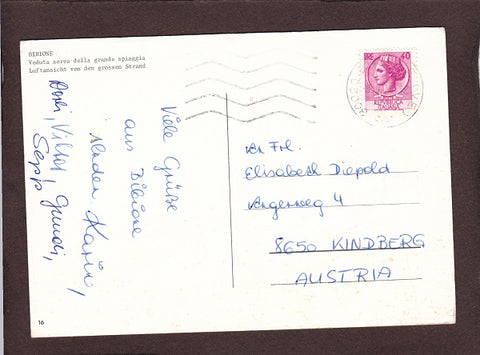 BIBIONE
Veduta aerea della grande spiaggia
Luftansicht von den grossen Strand
40
Viele Grüße
aus Bibione
Karin,
Dori, Viktor, Gundi,
Sepp
An Frl.
Elisabeth Diepold
Angerweg 4
8650 KINDBERG
AUSTRIA
16